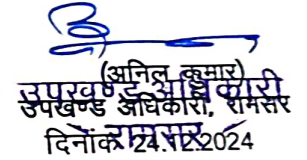 (अनिल कुमार)
उपखण्ड अधिकारी
उपखण्ड अधिकारी, रामसर
रामसर
दिनांक 24.12.2024